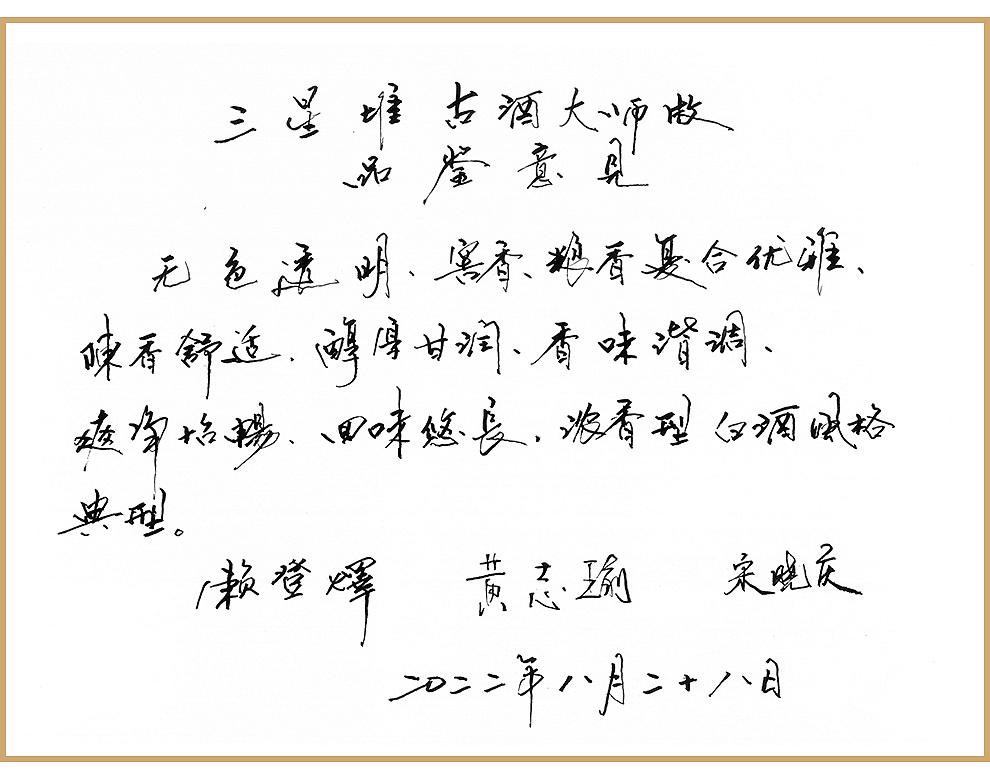 三星堆古酒大师做
品鉴意见
无色透明、窖香、粮香复合优雅、
陳香舒适、醇厚甘润、香味谐调、
爽净怡暢、回味悠長，浓香型白酒風格
典型。
赖登燡 黄志瑜 宋晓庆
二〇二二年八月二十八日